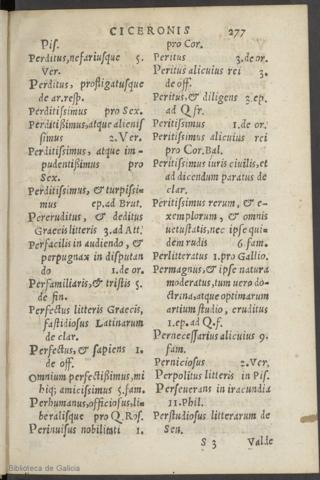 CICERONIS 277
Pis.
Perditus, nefariusque 5.
Ver.
Perditus, profligatusque
de ar.resp.
Perditissimus pro Sex.
Perditissimus, atque alienis
simus 2.Ver.
Perditissimus, atque im-
pudentissimus pro
Sex.
Perditissimus, & turpissi-
mus ep.ad Brut.
Pereruditus, & deditus
Graecis litteris 3.ad Att.
Perfacilis in audiendo, &
perpugnax in disputan
do 1.de or.
Perfamiliaris, & tristis 5.
de fin.
Perfectus litteris Graecis,
fastidiosus Latinarum
de clar.
Perfectus, & sapiens 1.
de off.
Omnium perfectissimus, mi
hiq; amicissimus 5.fam.
Perhumanus, officiosus, li-
beralisque pro Q.Ros.
Perinuisus nobilitati 1.
pro Cor.
Peritus 3.de or.
Peritus alicuius rei 3.
de off.
Peritus, & diligens 3.ep.
ad Q.fr.
Peritissimus 1.de or.
Peritissimus alicuius rei
pro Cor.Bal.
Peritissimus iuris ciuilis, et
ad dicendum paratus de
clar.
Peritissimus rerum, & e-
xemplorum, & omnis
uetustatis, nec ipse qui-
dem rudis 6.fam.
Perlitteratus 1.pro Gallio.
Permagnus, & ipse natura
moderatus, tum uero do-
ctrina, atque optimarum
artium studio, eruditus
1.ep.ad Q.f.
Pernecessarius alicuius 9.
fam.
Perniciosus 2.Ver.
Perpolitus litteris in Pis.
Perseuerans in iracundia
11.Phil.
Perstudiosus litterarum de
Sen.
S 3 Valde
Biblioteca de Galicia